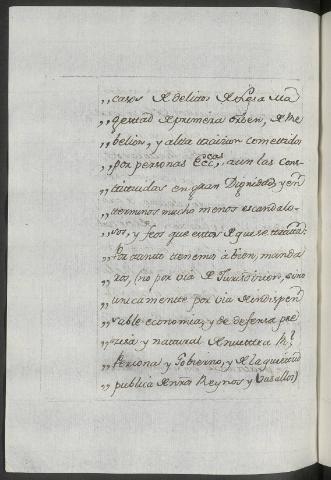 „casos de delitos de Lesa Ma
„gestad de primera orden, de Re
„belion, y alta traicion cometidos
„por personas Eccas, aun las Cons
„tituidas en gran Dignidad, y en
„terminos mucho menos escandalo-
„sos, y feos que estos de que se trata:
„Por tanto tenemos à bien, manda
„ros, (no por via de Jurisdicion, sino
„unicamente por via de indispen
„sable economia, y de defensa pre
„cisa y natural de nuestra Rl
„Persona y Govierno, y de la quietud
„publica de nros Reynos y Vasallos)